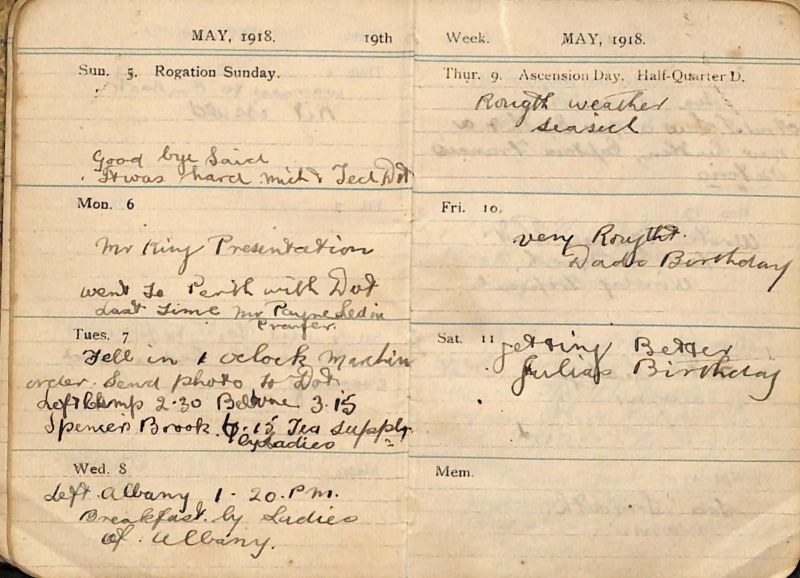 MAY, 1918. 19th
Sun. 5. Rogation Sunday.
Good bye Said
It was hard Ted Dot
Mon. 6
Mr King Presentation
went to Perth with Dot
Last Time Mr Payne Led in
Prayer.
Tues. 7
Fell in 1 oclock Marchin
order. Send photo to Dot
Left Camp 2.30 3.15
Spencers Brook 6.15 Tea supply
by Ladies
Wed. 8
Left Albany 1-20. P.M.
Breakfast by Ladies
of Albany.
Week. MAY, 1918.
Thur. 9. Ascension Day. Half-Quarter D.
Rougth weather
seasick
Fri. 10.
very Rougtht.
Dads Birthday
Sat. 11
getting Better
Julias Birthday
Mem.